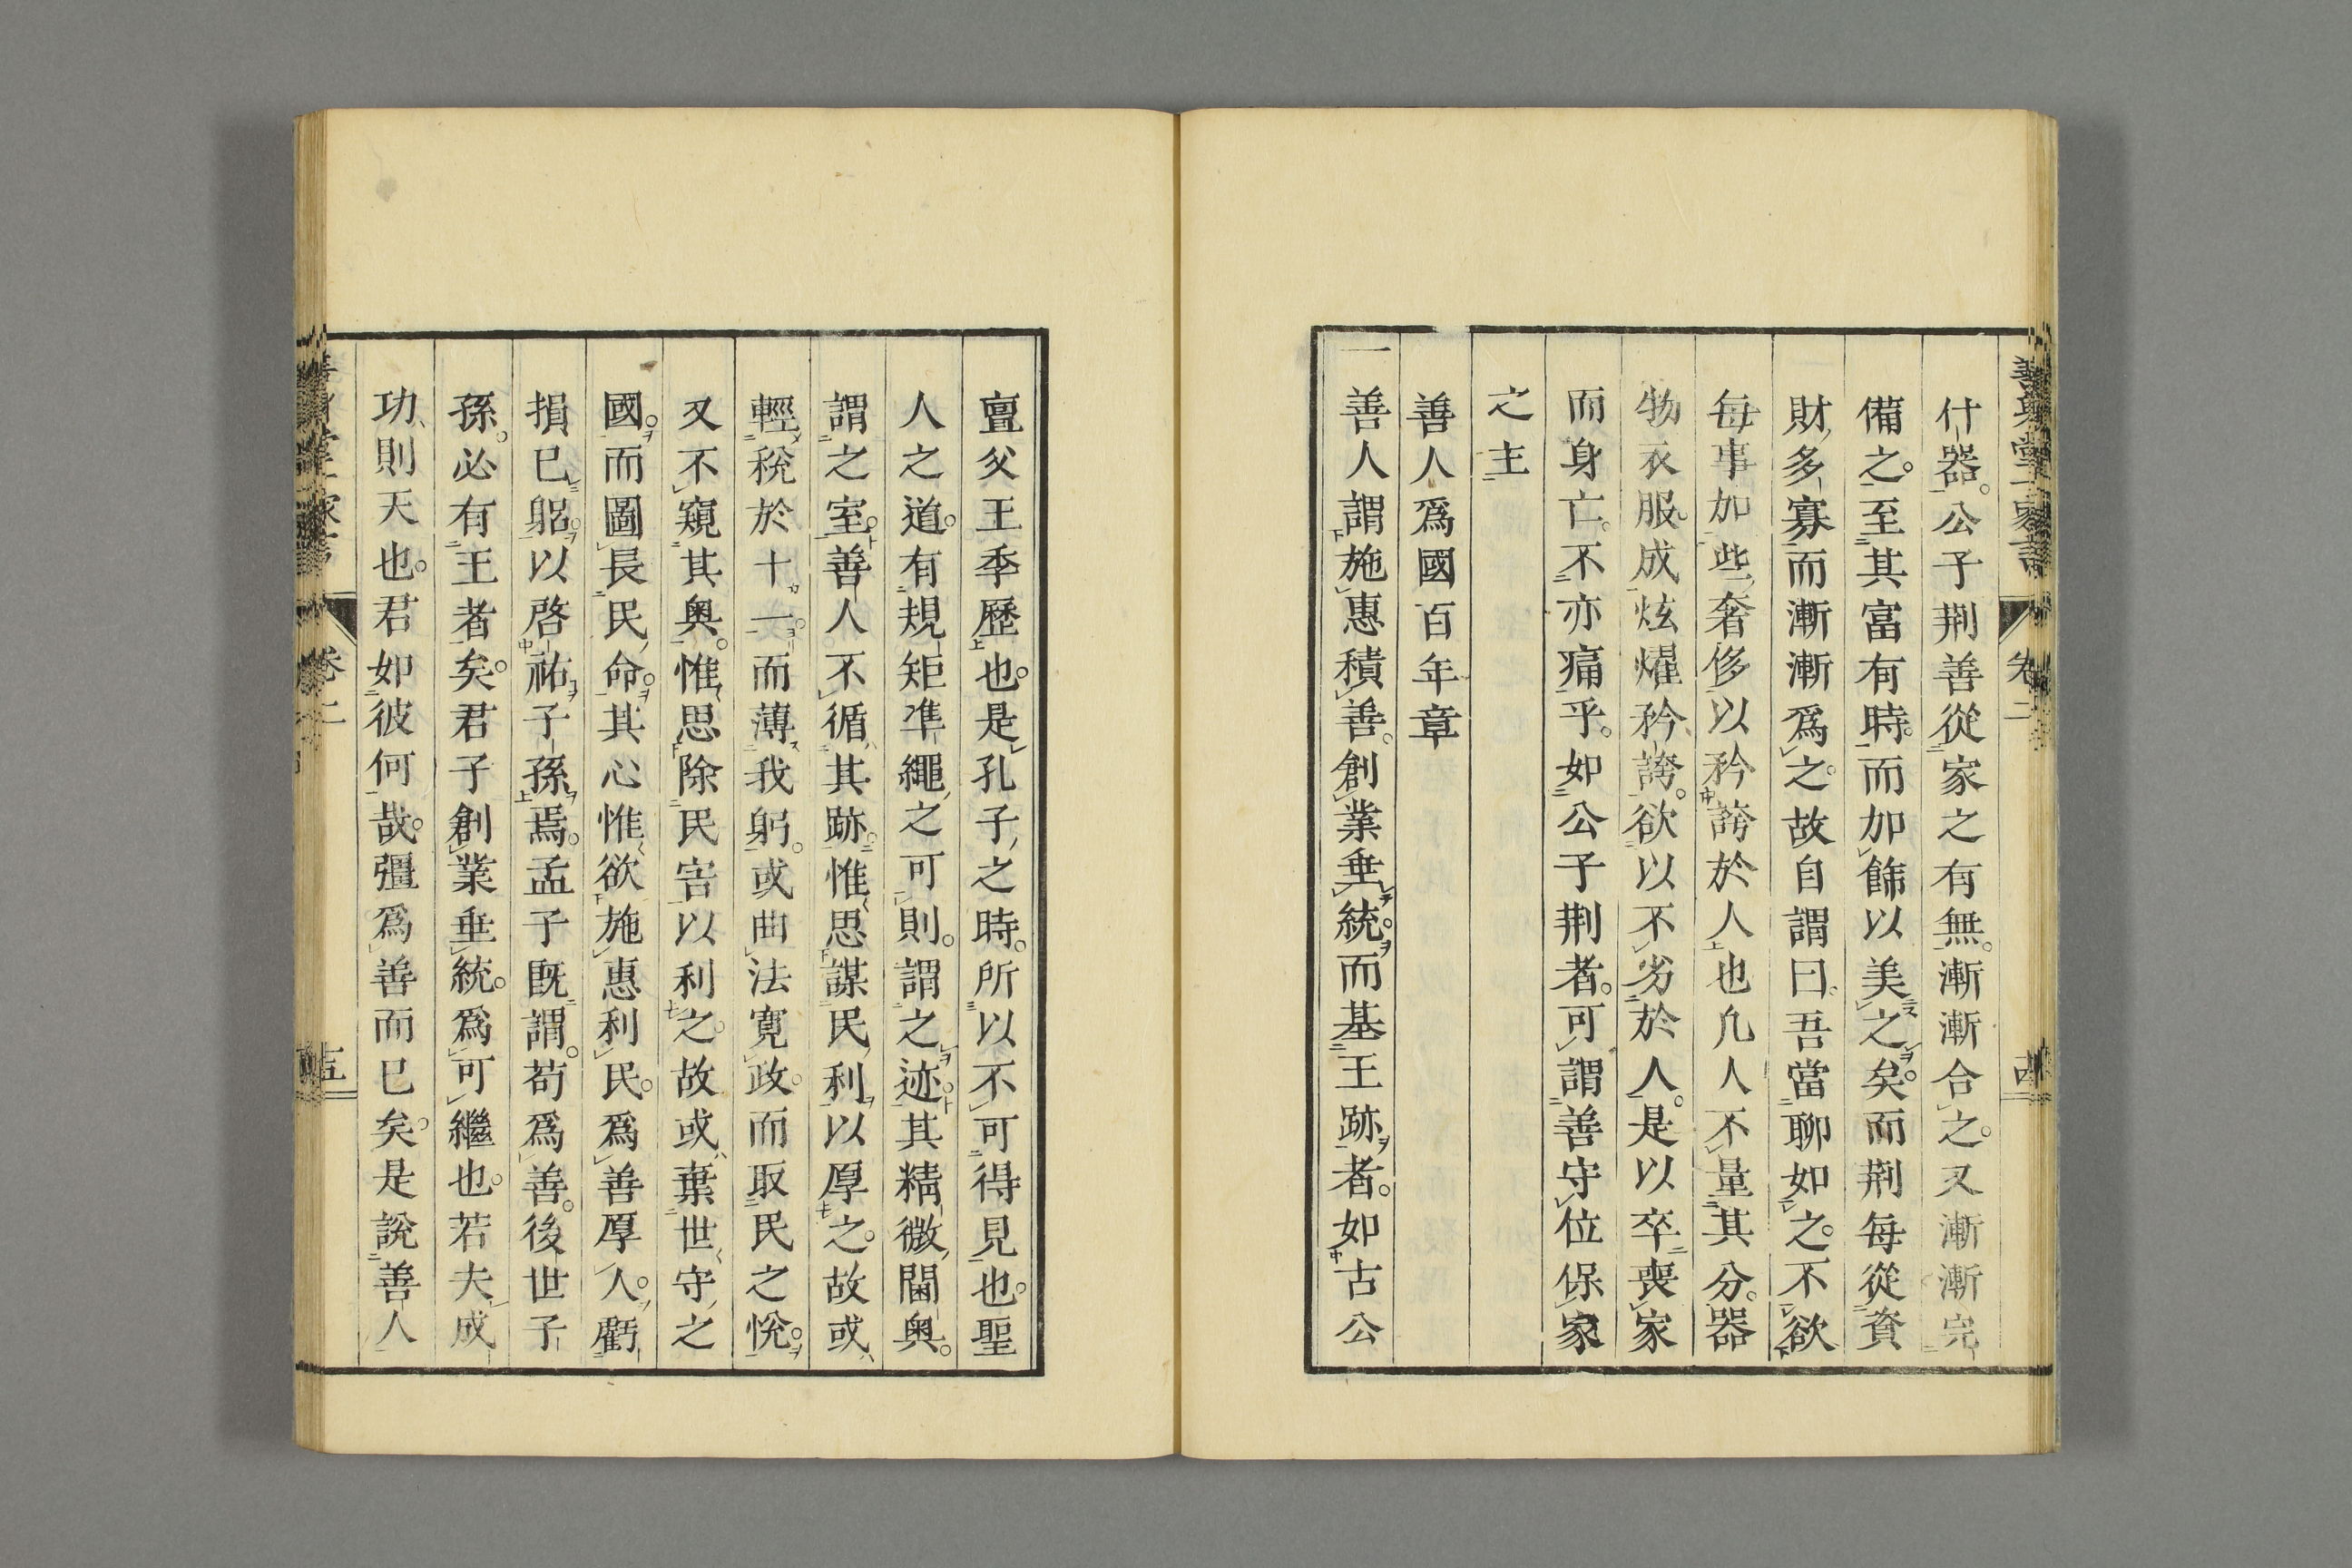 什器。公子荆善從家之有無。漸漸合之。又漸漸完
備之。至其富有時。而加飾以美之矣。而荆每從資
財多寡而漸漸爲之。故自謂曰。吾當聊如之。不欲
每事加些奢侈以矜誇於人也凢人不量其分。器
物衣服。成炫燿矜誇。欲以不劣於人。是以卒喪家
而身亡。不亦痛乎。如公子荆者。可謂善守位保家
之主
善人爲國百年章
一善人謂施惠積善。創業垂統。而基王跡者。如古公
亶父王季歷也。是孔子之時。所以不可得見也。聖
人之道。有規矩準繩之可則。謂之迹。其精微閫奥。
謂之室。善人不循其跡。惟思謀民利以厚之。故或
輕稅於十一。而薄我躬。或曲法寛政。而取民之悅。
又不窺其奥。惟思除民害以利之。故或棄世守之
國。而圖長民命。其心惟欲施惠利民。爲善厚人。虧
損已躬。以啓祐子孫焉。孟子既謂。苟爲善。後世子
孫。必有王者矣。君子創業垂統。爲可繼也。若夫成
功則天也。君如彼何哉。彊爲善而已矣。是說善人
卷二
卷二
十五